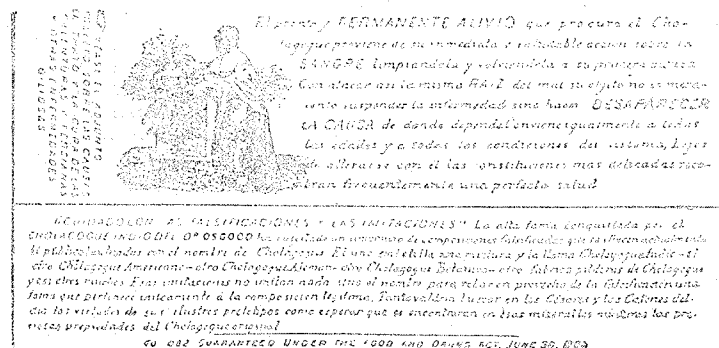 LEASE EL ADJUNTO
FOLLETO SOBRE LAS CAUSAS
EL TIPO Y LA CURA DE LAS
CALENTURAS Y TERCIANAS
Y OTRAS ENFERMEDADES
BILIOSAS
El pronto y PERMANENTE ALIVIO que procura el Cho-
lagogue proviene de su inmediata e saludable accion sobre la
SANGRE limpiandola y volviendola a su primera pureza
Con atacar asi la misma RAIZ del mal su objeto no es mera-
mente suspender la enfermedad sino hacer DESAPARECER
LA CAUSA de donde depende Conviene igualmente a todas
las edades y a todas las condiciones del sistema, Lejos
de alterarse con el las constituciones mas delicadas reco-
bran frecuentemente una perfecta salud
CUIDADO CON LAS FALSIFICACIONES Y LAS IMITACIONES" La alta fama conquistada por el
CHOLAGOGUE INDIO DEL Dr OSGOOD ha suscitado un de composiciones falsificadas que se ofrecen actualmente
al publico con el nombre de Cholagogue El uno una mixtura y la llama Cholagogue Indio - el
otro Cholagogue Americano - otro Cholagogue Aleman - otro Cholagogue Botanico - otro fabrica pildoras de Cholagogue
y asi otros muchos Esas imitaciones no imitan nada sino el nombre para en provecho de la falsificacion una
fama que pertenece unicamente á la composicion legitima, Tanto valdria buscar en los Césares y los Catones del
dia las virtudes de sus ilustres prototipos como esperar que se encontraran en esas miserables las pre-
ciosas propiedades del Cholagogue original
GUARANTEED UNDER THE FOOD AND DRUGS ACT, JUNE 30, 1906